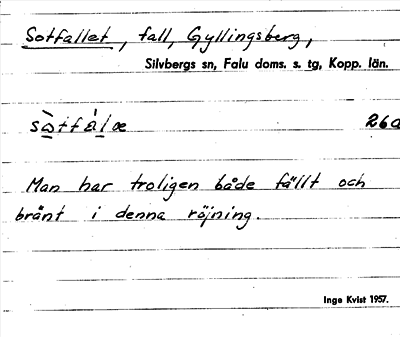 Sotfallet, fall, Gyllingsberg,
Silvbergs sn, Falu doms. s. tg, Kopp. län.
260
Man har troligen både fällt och
bränt i denna röjning.
Inge Kvist 1957.